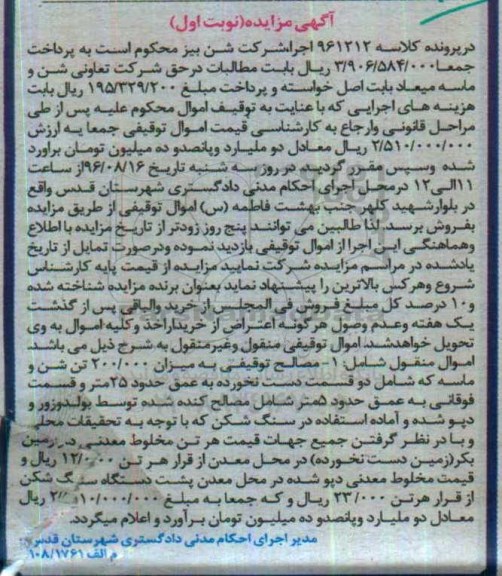 آگهی مزایده(نوبت اول)
درپرونده کلاسه ۹۶۱۲۱۲ اجراشرکت شن بیز محکوم است به پرداخت
جمعا۳/۹۰۶/۵۸۴/۰۰۰ ریال بابت مطالبات درحق شرکت تعاونی شن و
ماسه میعاد بابت اصل خواسته و پرداخت مبلغ ۱۹۵/۳۲۹/۲۰۰ ریال بابت
هزینه های اجرایی که با عنایت به توقیف اموال محکوم علیه پس از طی
مراحل قانونی وارجاع به کارشناسی قیمت اموال توقیفی جمعا به ارزش
۲/۵۱۰/۰۰۰/۰۰۰ ریال معادل دو ملیارد وپانصدو ده میلیون تومان براورد
شده وسپس مقرر گردید در روز سه شنبه تاریخ ۹۶/۰۸/۱۶از ساعت
۱۱الی۱۲ درمحل اجرای احکام مدنی دادگستری شهرستان قدس واقع
در بلوارشهید کلهر جنب بهشت فاطمه (س) اموال توقیفی از طریق مزایده
بفروش برسد. لذا طالبین می توانند پنج روز زودتر از تاریخ مزایده با اطلاع
وهماهنگی این اجرا از اموال توقیفی بازدید نموده ودرصورت تمایل از تاریخ
یادشده در مراسم مزایده شرکت نمایند مزایده از قیمت پایه کارشناس
شروع وهرکس بالاترین را پیشنهاد نماید بعنوان برنده مزایده شناخته شده
و۱۰ درصد کل مبلغ فروش فی المجلس از خرید والباقی پس از گذشت
یک هفته وعدم وصول هرگونه اعتراض از خریداراخذ وکلیه اموال به وی
تحویل خواهدشد. اموال توقیفی منقول وغیرمنقول به شرح ذیل می باشد
اموال منقول شامل: ۱- مصالح توقیفی به میزان ۲۰۰/۰۰۰ تن شن و
ماسه که شامل دو قسمت دست نخورده به عمق حدود ۲۵متر و قسمت
فوقانی به عمق حدود ۵متر شامل مصالح کنده شده توسط بولدوزور و
دپو شده و آماده استفاده در سنگ شکن که با توجه به تحقیقات محلی
و با در نظر گرفتن جمیع جهات قیمت هر تن مخلوط معدنی در زمین
بکر(زمین دست نخورده) در محل معدن از قرار هر تن ۱۲/۰۰۰ ریال و
قیمت مخلوط معدنی دپو شده در محل معدن پشت دستگاه سنگ شکن
از قرار هرتن ۲۳/۰۰۰ ریال و که جمعا به مبلغ ریال
معادل دو ملیارد وپانصدو ده میلیون تومان برآورد و اعلام میگردد.
مدیر اجرای احکام مدنی دادگستری شهرستان قدس
م الف ۱۰۸/۱۷۶۱